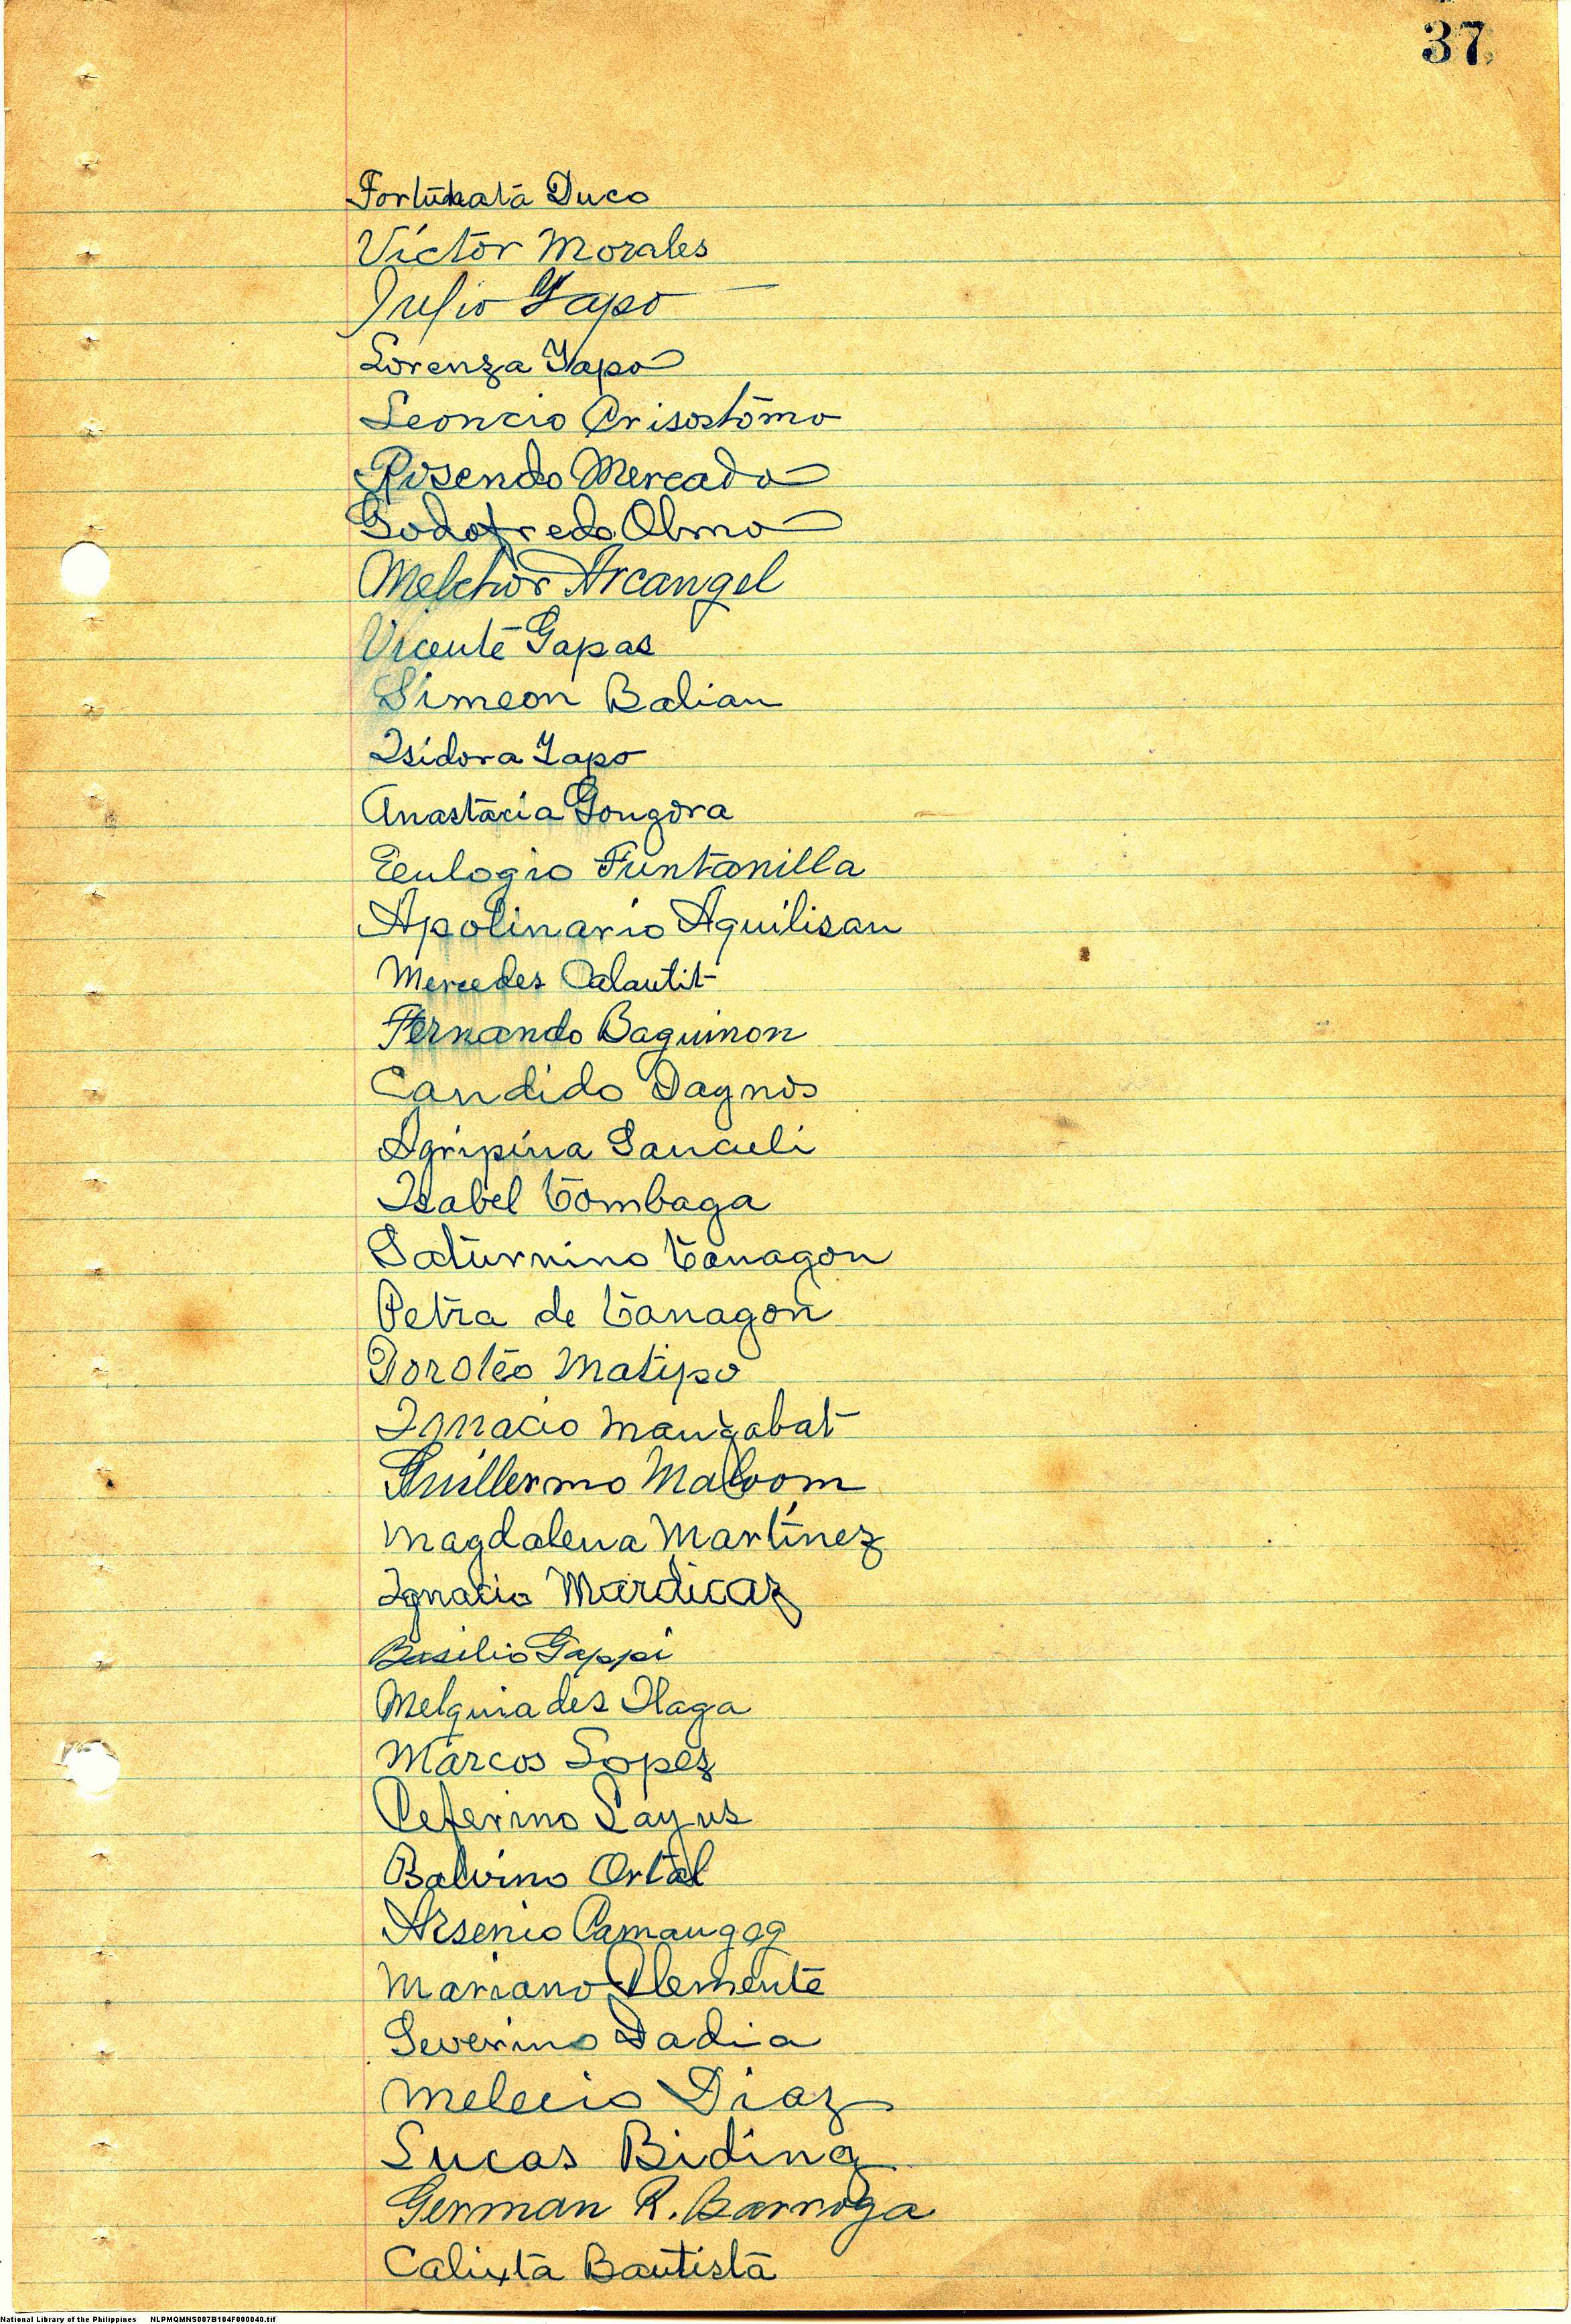 37
Fortunata Duco
Victor Morales
Julio Yapo
Lorenza Yapo
Leoncio Crisostomo
Rosendo Mercado
Godofredo Olmo
Melchor Arcangel
Vicente Gapas
Simeon Balian
Isidora Yapo
Anastacia Gongora
Eulogio Funtanilla
Apolinario Aquilisan
Mercedes Calautit
Fernando Baguinon
Candido Dagnos
Agripina
Isabel Tombaga
Saturnino Tanagon
Petra de Tanagon
Doroteo Matipo
Ignacio Manzabat
Guillermo
Magdalena Martinez
Ignacio Mardicaz
Basilio Gappi
Melquiades Ilaga
Marcos Lopez
Ceferino Layus
Balvino Ortal
Arsenio Camangeg
Mariano Clemente
Severino Dadia
Melecio Diaz
Lucas Biding
German R. Barroga
Calixta Bautista
National Library of the Philippines NLPMQMNS007B104F000040.tif